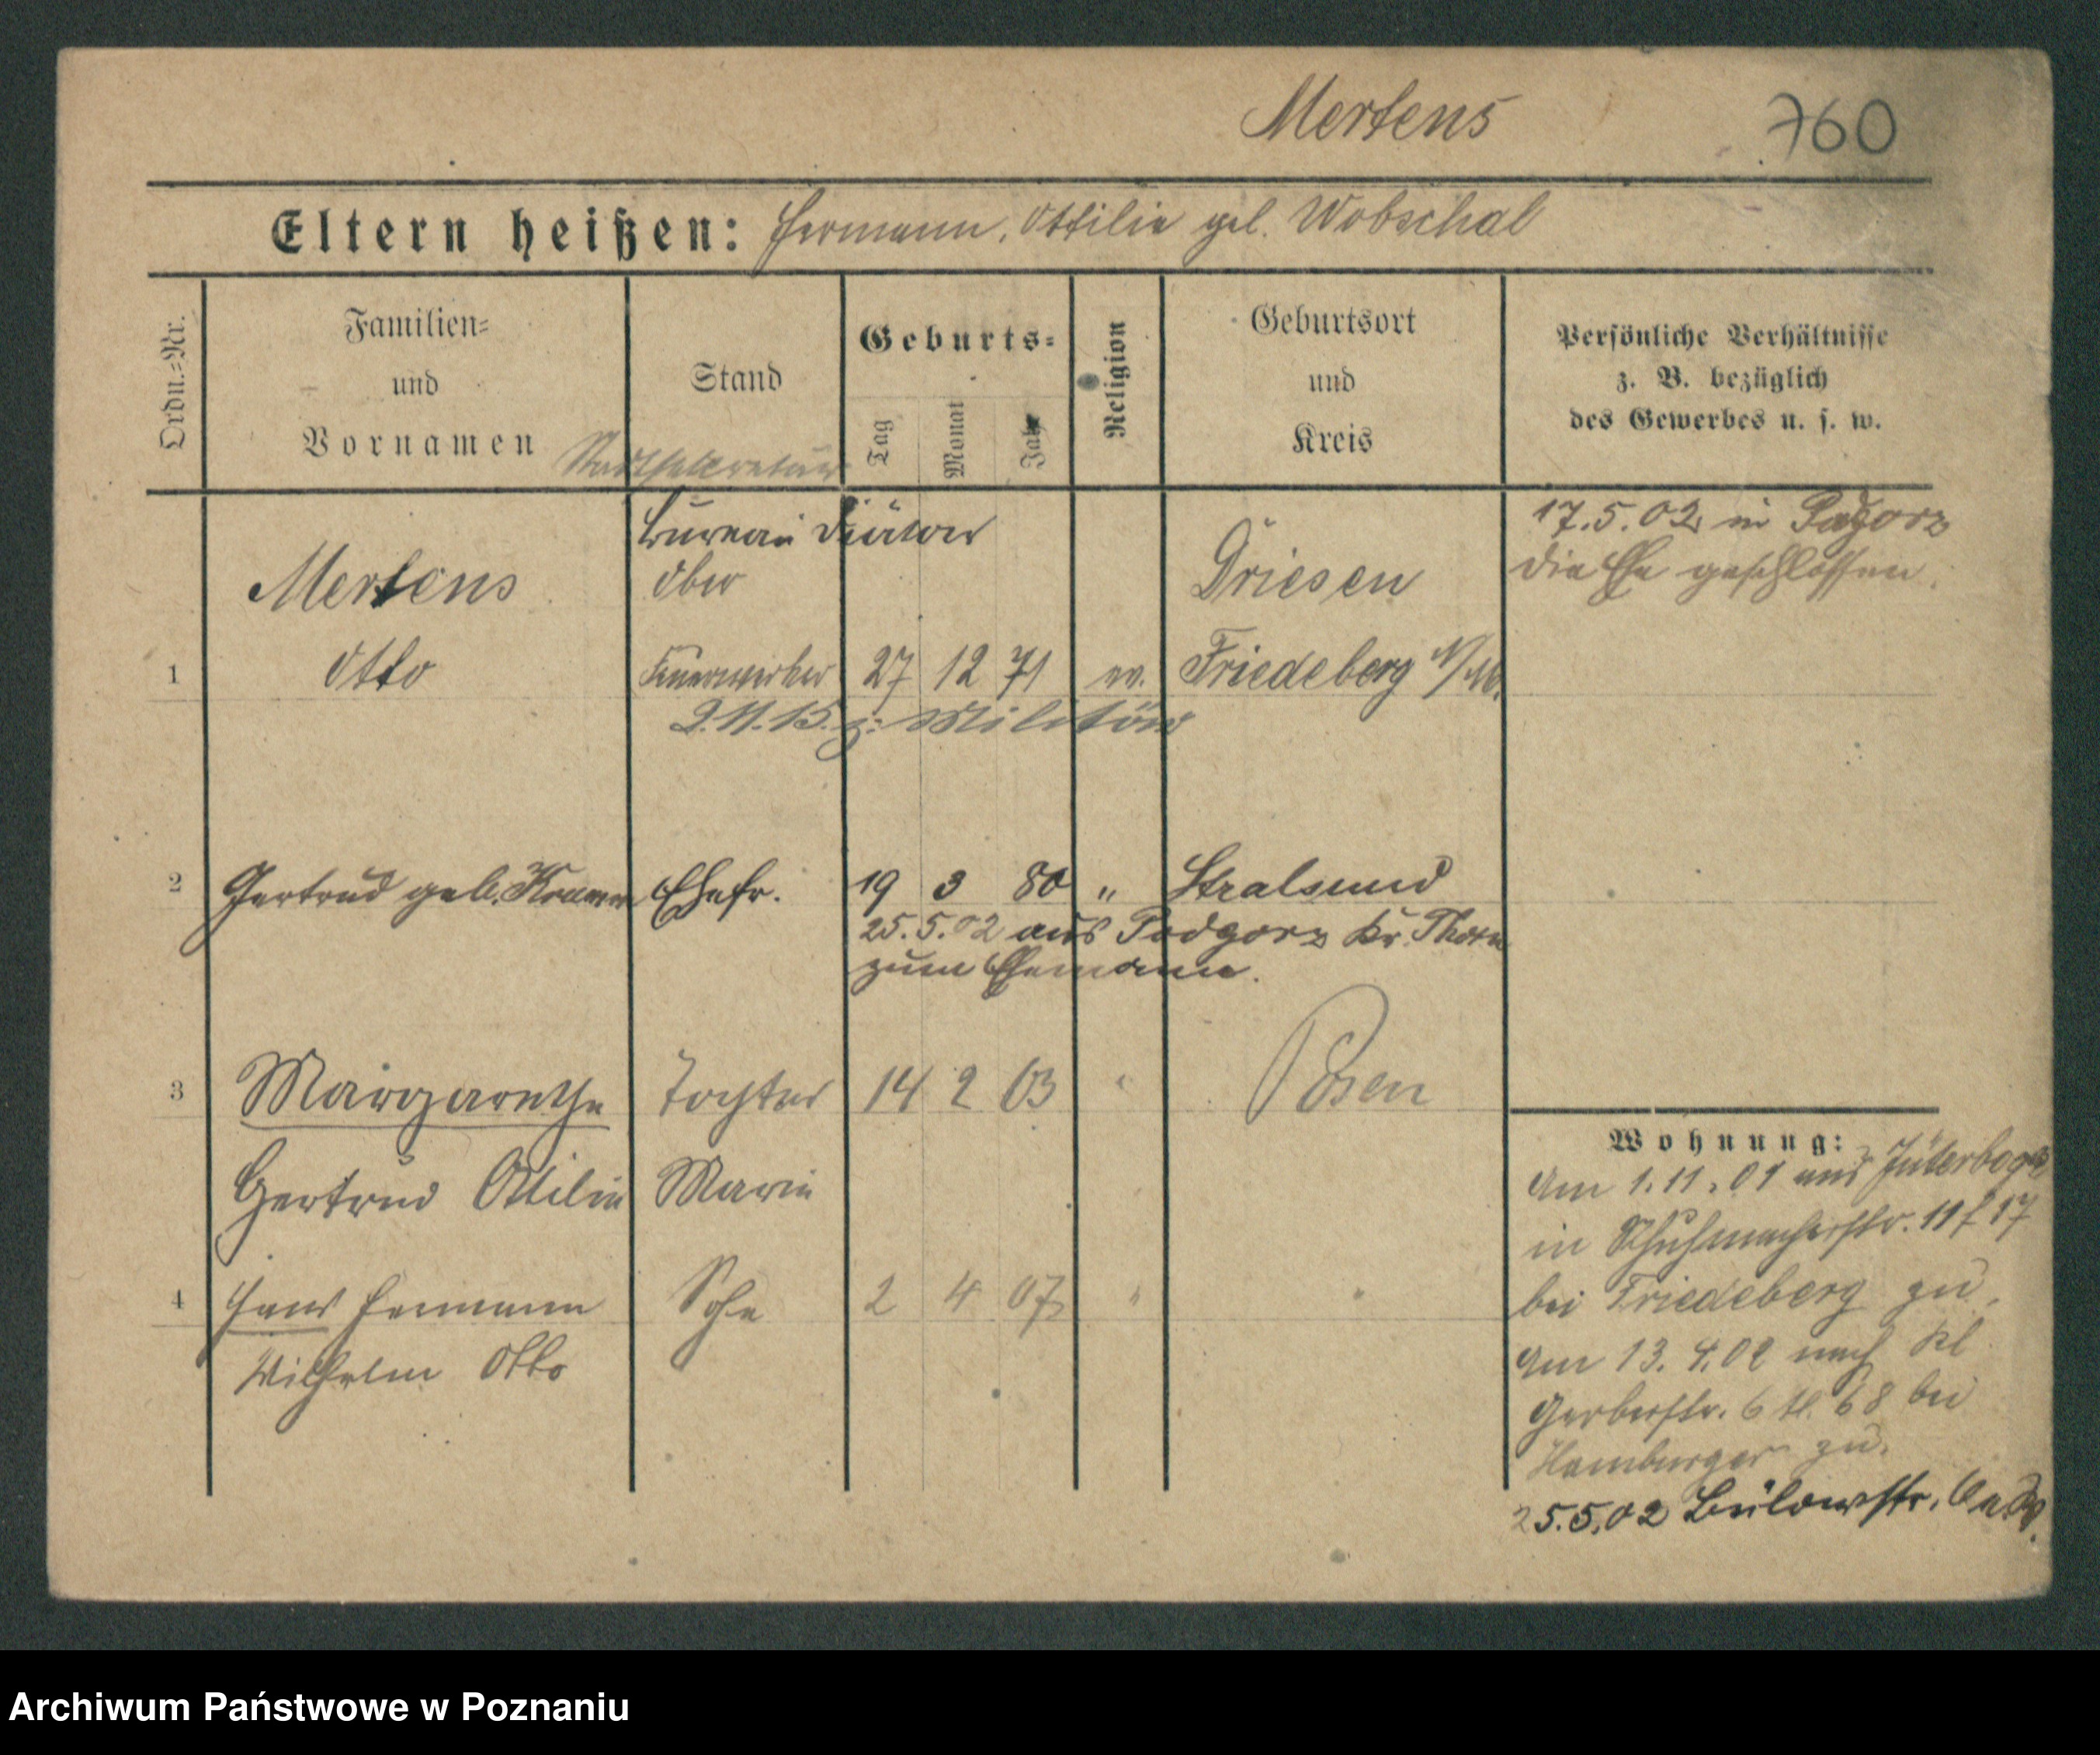 Mertens 760
Eltern heißen: Hermann, Ottilie geb. Wobschal
Ordn.=Nr.
Familien=
und
Vornamen
Stand
Geburts=
Tag
Monat
Jahr
Religion
Geburtsort
und
Kreis
Persönliche Verhältnisse
z. B. bezüglich
des Gewerbes u. s. w.
Stadtsekretär
Bureau Diätar
Mertens Ober Driesen
1 Otto Feuerwerker 27 12 71 ev. Friedeberg N/M.
2.11.15. z. Militär
17.5.02 in Podgorz
die Ehe geschlossen.
2 Gertrud geb. Ehefr. 19 3 80 " Stralsund
25.5.02 aus Podgorz Kr. Thorn
zum Ehemann.
3 Margarethe Tochter 14 2 03 " Posen
Gertrud Ottilie Marie
4 Hans Hermann Sohn 2 4 07 " "
Wilhelm Otto
Wohnung:
Am 1.11.01 aus Jüterbog
in Schuhmacherstr. 11 17
bei Friedeberg zu.
Am 13.4.02 nach Kl
Gerberstr. 6 68 bei
Hamburger zu.
25.5.02 Bülowstr.
Archiwum Państwowe w Poznaniu